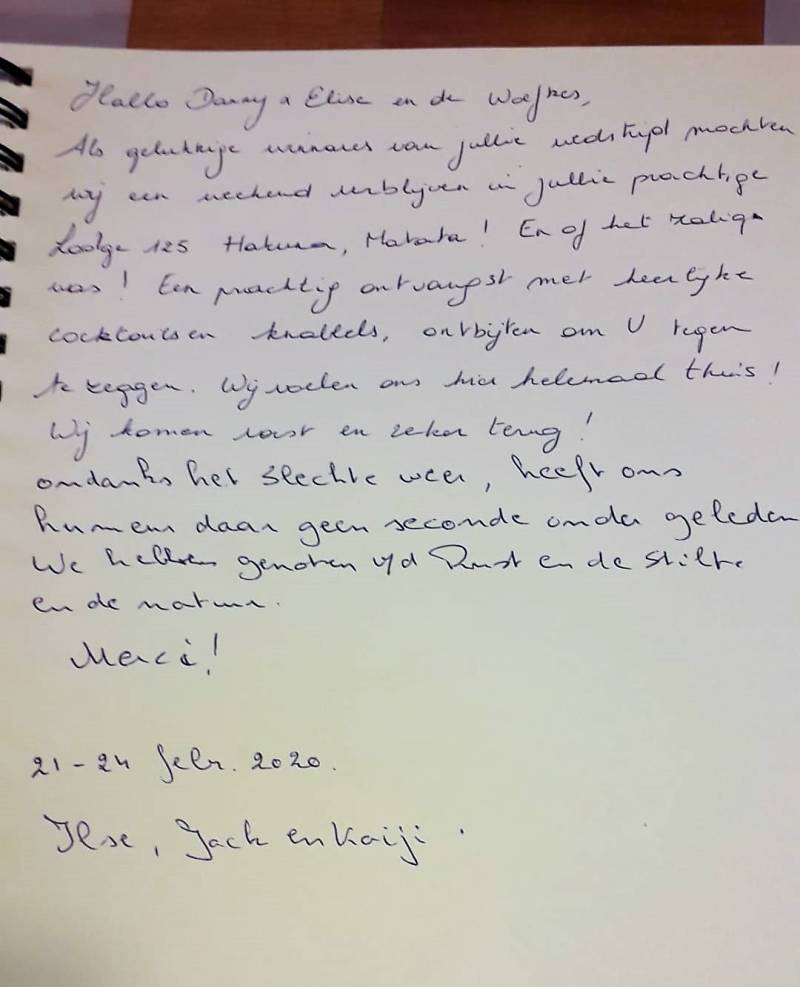 Hallo Danny & Elise en de Woefkes,
Als gelukkige winnares van jullie wedstrijd mochten
wij een weekend verblijven in jullie prachtige
Lodge 125 Hakuna, Matata! En of het zalig
was! Een prachtig ontvangst met heerlijke
cocktails en knabbels, ontbijten om U tegen
te zeggen. Wij voelen ons hier helemaal thuis!
Wij komen vast en zeker terug!
ondanks het slechte weer, heeft ons
humeur daar geen seconde onder geleden
We hebben genoten v/d Rust en de stilte
en de natuur.
Merci!
21 - 24 febr. 2020.
Ilse, Jack en Kaiji.